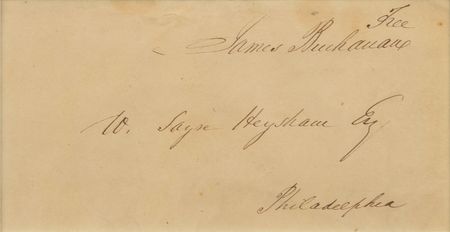 Free
James Buchanan
W. Sayre Heysham Esq
Philadelphia